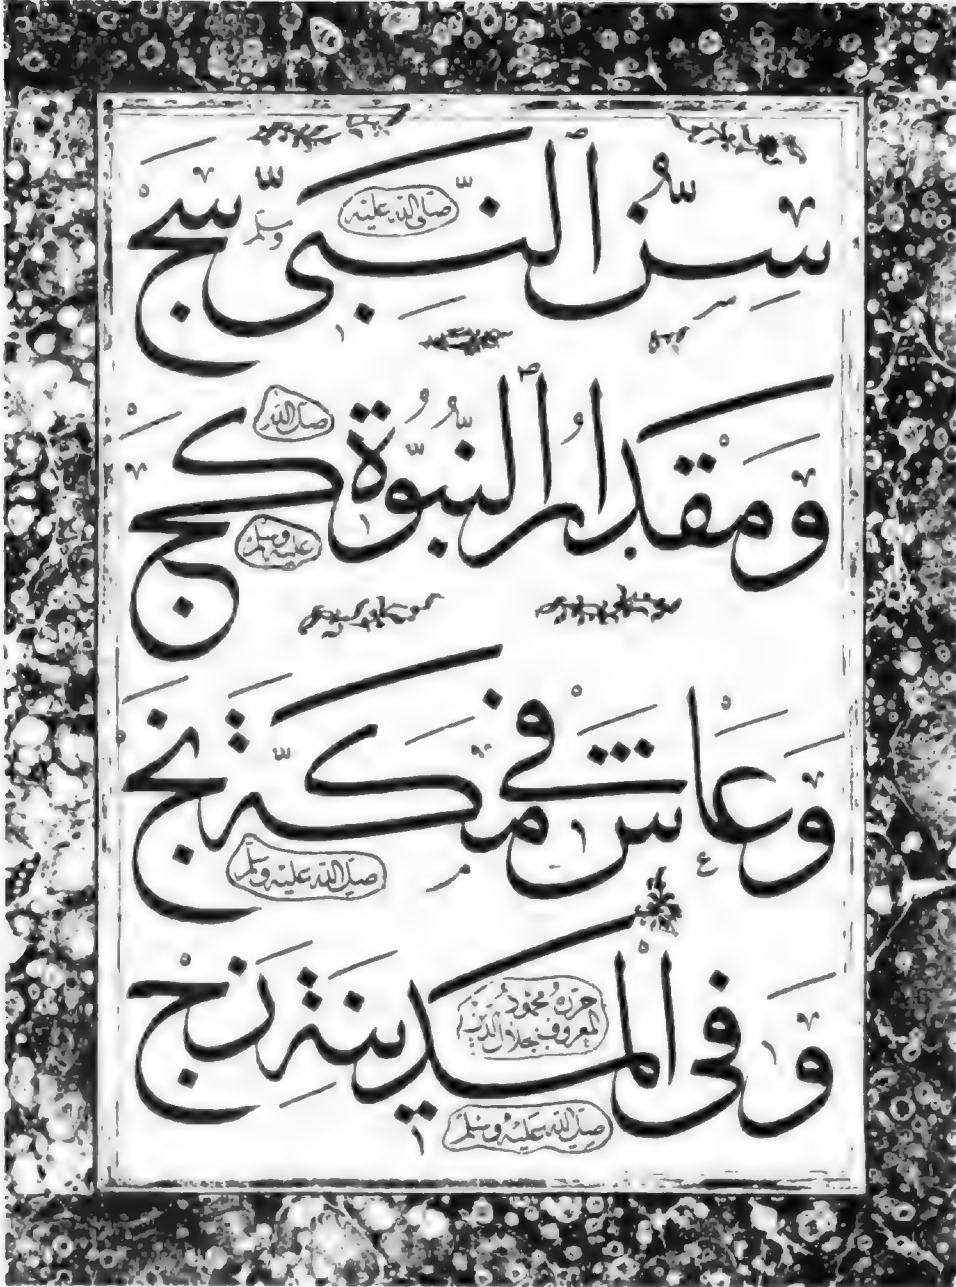 سِنُّ ٱلنَّبِي صلى الله عليه وسلم سج
وَمقْدَارُ ٱلنُّبُوَّة صلى الله عليه وسلم كج
وَعَاش فى مَكَّة نج صلى الله عليه وسلم
وَفى ٱلْمدينَة زج
حرره محمود
المعروف بجلال الدين
صلى الله عليه وسلم